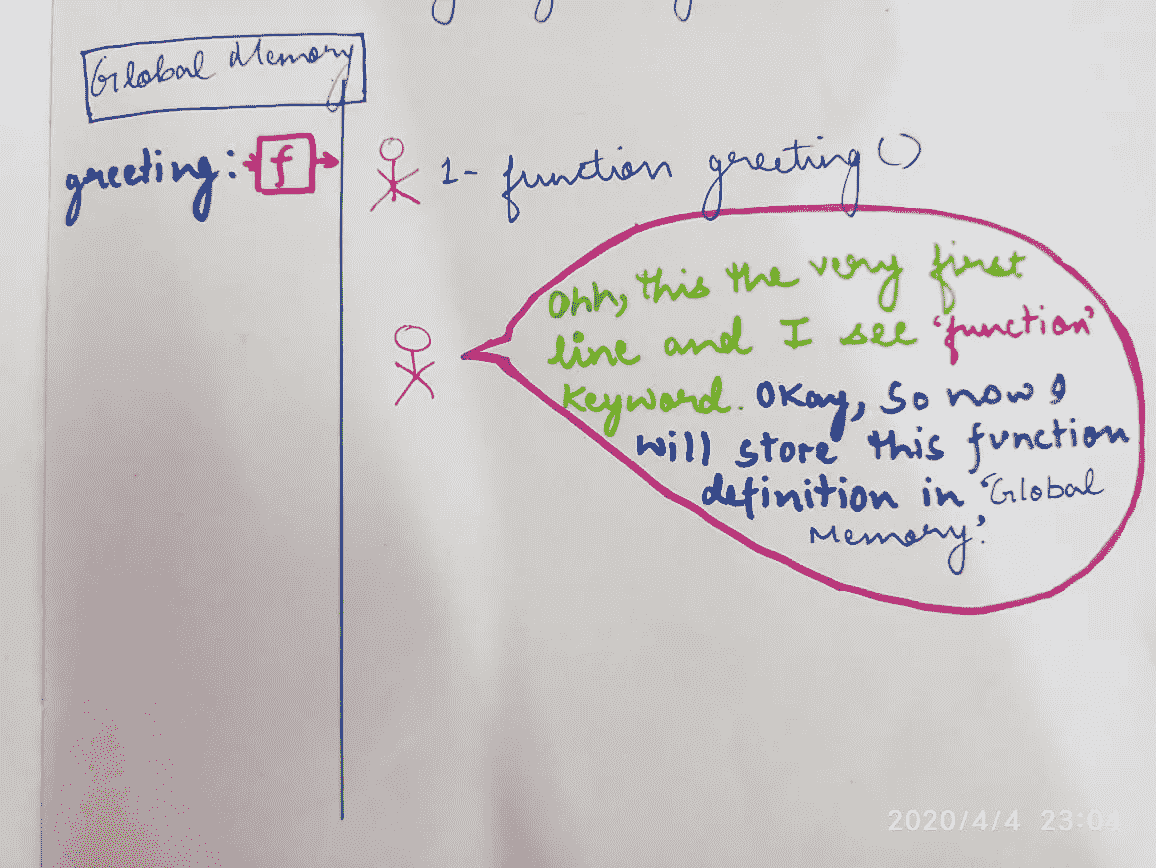 Global Memory
greeting: f
1- function greeting ()
Ohh, this the very first
line and I see 'function'
keyword. Okay, So now I
will store this function
definition in 'Global
Memory'.
2020/4/4 23:04